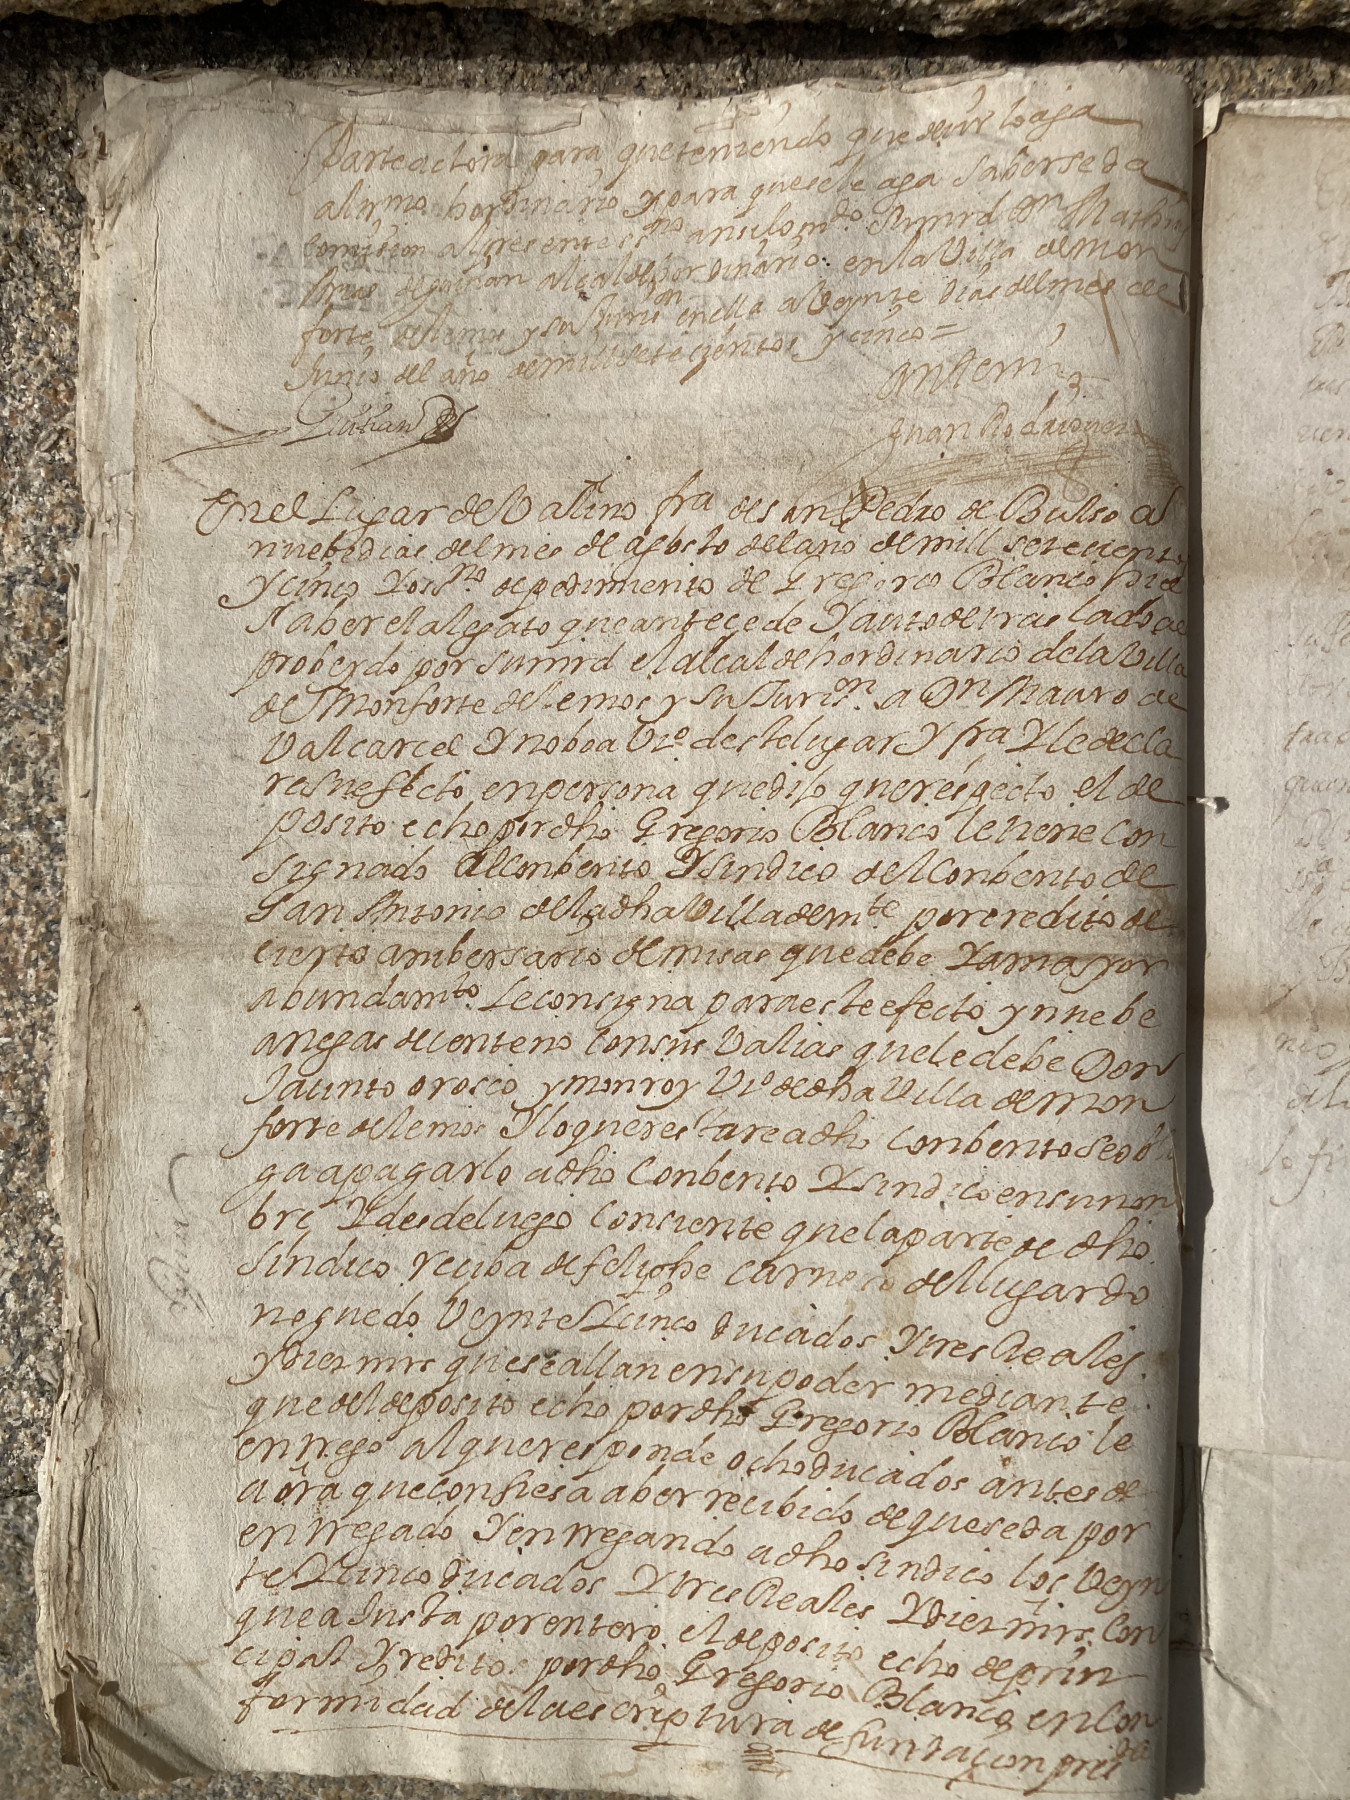 Parte actora para que teniendo que decir lo aga
al termo hordinario Y para que se le aga saber se da
Comision al presente ssno ansi lo mdo Su mrd Dn Mathias
de gaitan alcalde hordinario en la Villa de mon
forte de lemos y su Jurison en ella a Veynte dias del mes de
Junio del año de mill setecientos y cinco =
Gaitan
Antemi
Juan Rodriguez
En el Lugar de Valino fra de san Pedro de Bulso a
nuebe dias del mes de agosto del año de mill setecientos
y cinco Yo ssno de pedimiento de Gregorio Blanco hice
Saber el alegato que antecede Y auto de traslado de
proberdo por su mrd el alcalde hordinario de la Villa
de Monforte de lemos y su Jurison a Dn Mauro de
Valcarcel Y noboa Vzo deste lugar y fra Y le decla
res nefecto en persona que dijo que respecto el de
posito echo por dho Gregorio Blanco le tiene Con
signado al Conbento Y sindico del Conbento de
San Antonio de la dha Villa de mte por credito de
cierto anibersario de misas que debe Y a mayor
abundamto Le consigna para este efecto y nuebe
anegas de centeno Con sus Valias que le debe Don
Jacinto orosco y monroy Vzo de dha Villa de mon
forte de lemos Y lo que restare a dho Conbento se obli
ga a pagarlo a dho Conbento Y sindico en su nom
bre Y desde luego Consiente que la parte de dho
Sindico reciba de feliphe Carnero del lugar do
noguedo Veynte Y cinco ducados Y tres Reales
y diez mrs que se allan en su poder mediante
que del deposito echo por dho Gregorio Blanco le
entrego al que responde ocho ducados antes de
aora que confiesa aber recibido de que se da por
entregado Y entregando a dho sindico los Veyn
te Y cinco ducados Y tres Reales Y diez mrs Con
que a Justa por entero el deposito echo de prin
cipal Y reditos por dho Gregorio Blanco en Con
formidad de la escriptura de fundaçion